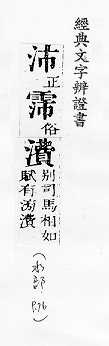 經典文字辨證書
沛正
霈俗
濆
別司馬相如
賦有滂濆
(水部 P.76)